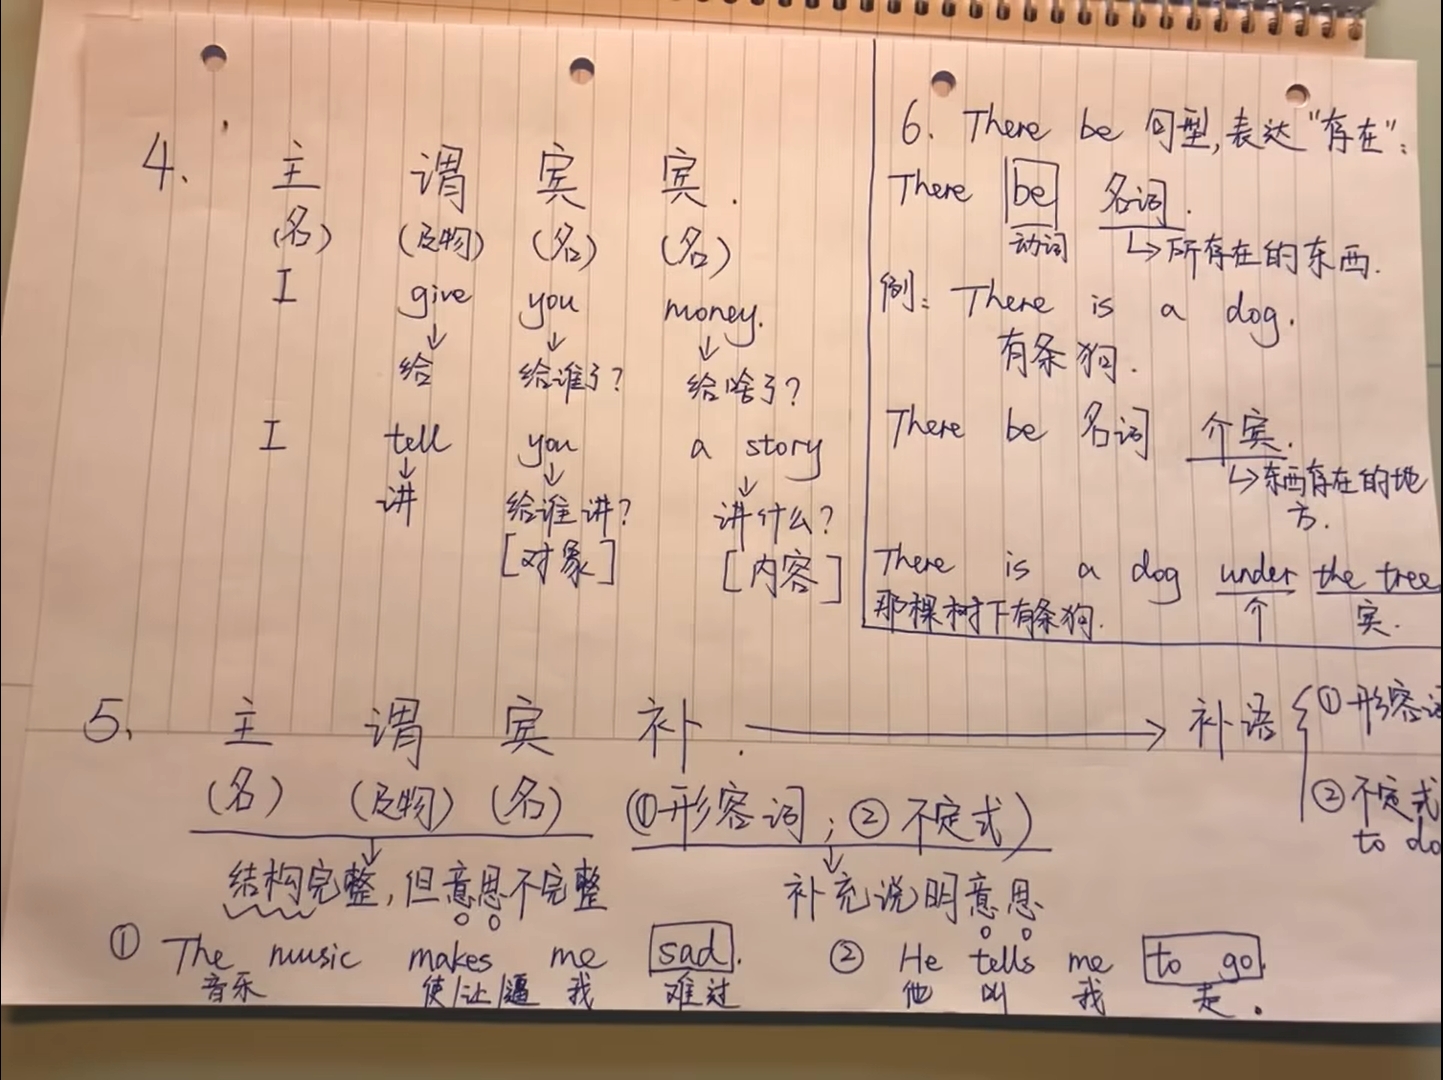 4. 主 谓 宾 宾.
(名) (及物) (名) (名)
I give you money.
给 给谁了? 给啥了?
I tell you a story
讲 给谁讲? 讲什么?
[对象] [内容]
6. There be 句型,表达“存在”:
There be 名词.
动词 所存在的东西.
例: There is a dog.
有条狗.
There be 名词 介宾.
东西存在的地
方.
There is a dog under the tree
那棵树下有条狗. 介 宾.
5. 主 谓 宾 补. 补语 ①形容词
(名) (及物) (名) (①形容词;②不定式) ②不定式
to do
结构完整,但意思不完整 补充说明意思
① The music makes me sad. ② He tells me to go.
音乐 使/让/逼 我 难过 他 叫 我 走.